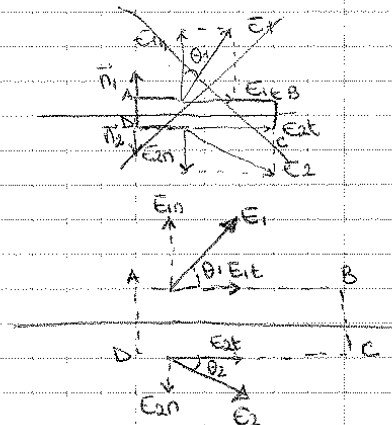 E1n E1
θ1
n1 A E1t B
D E2t
n2 E2n C
E2
E1n E1
A θ1 E1t B
D E2t C
θ2
E2n E2